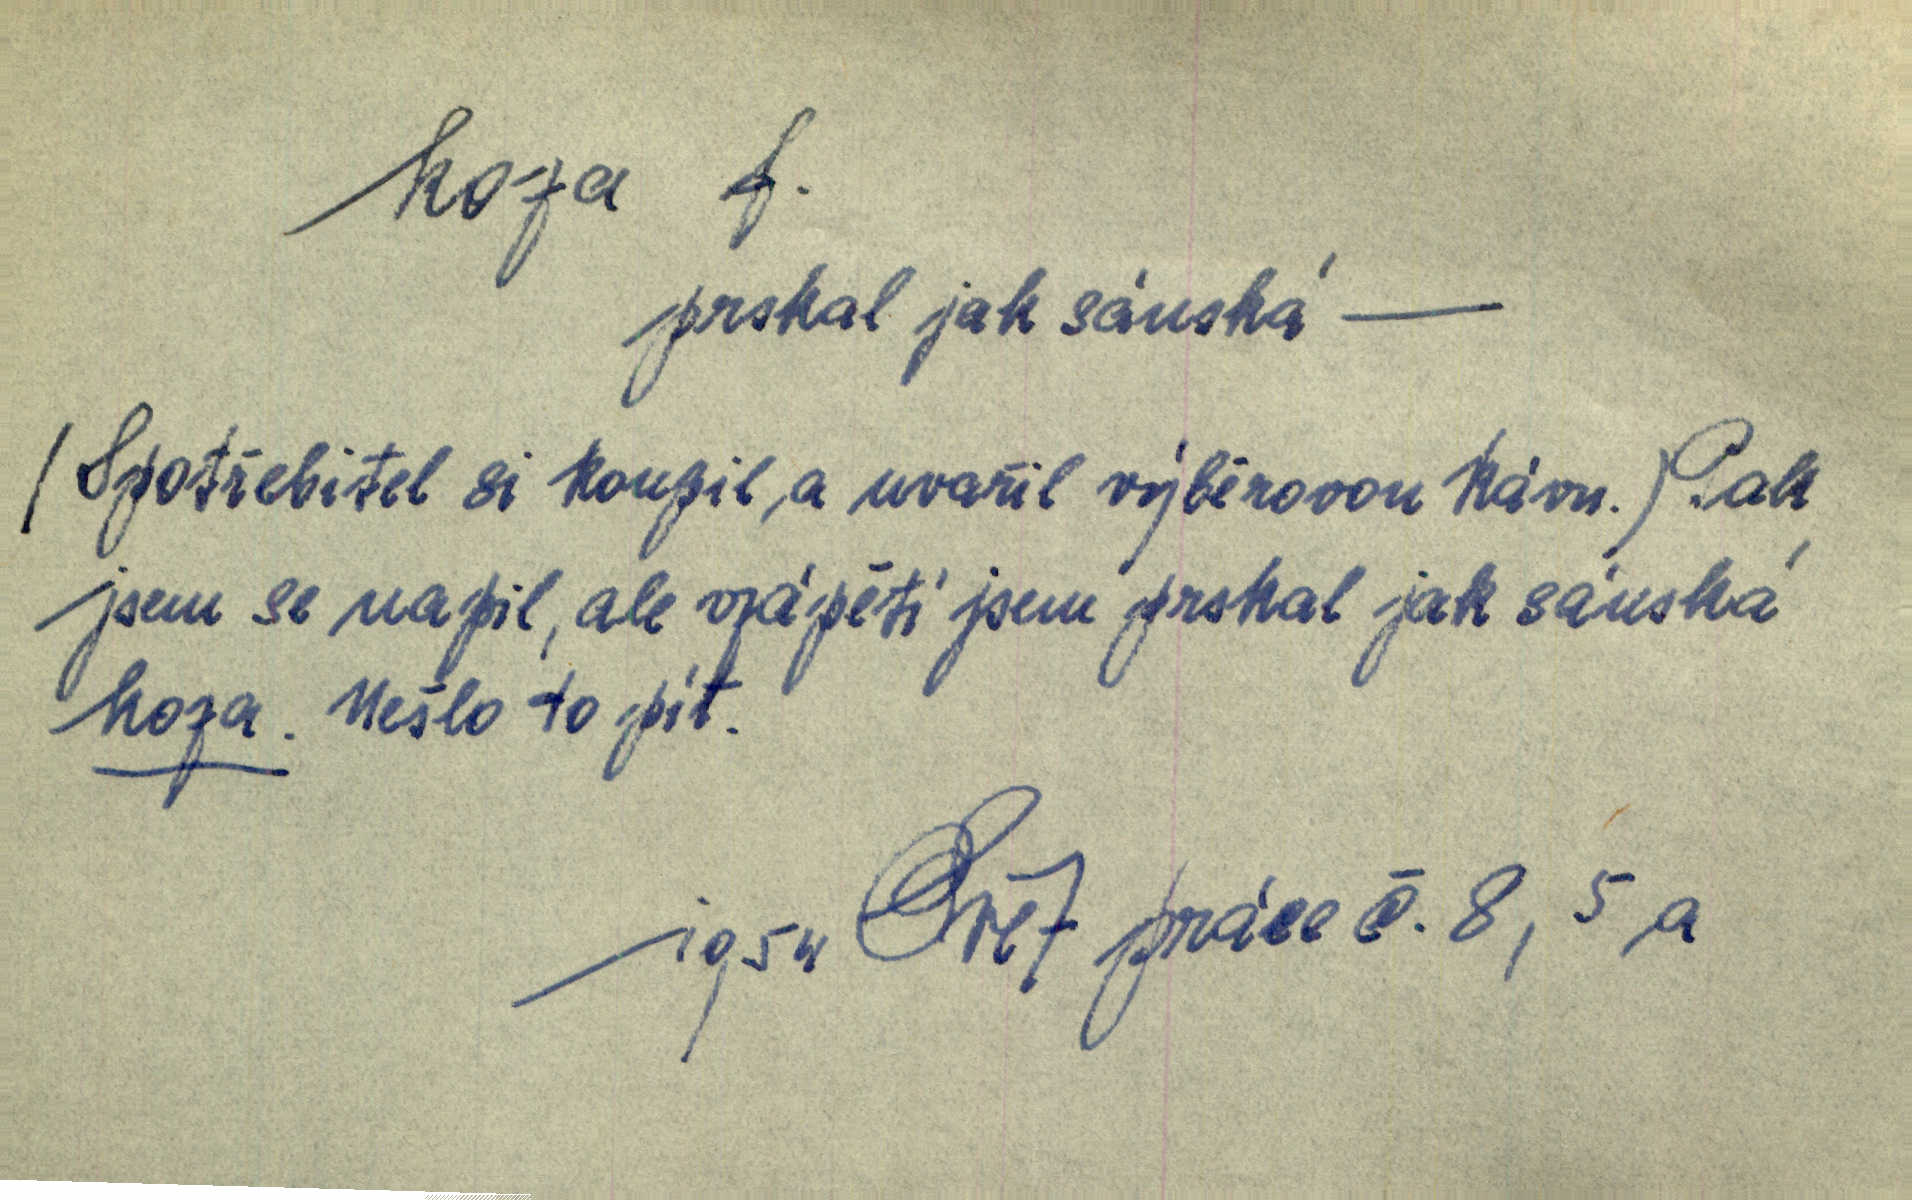 koza f.
prskal jak sánská —
(Spotřebitel si koupil, a uvařil výběrovou kávu.) Pak
jsem se napil, ale vzápětí jsem prskal jak sánská
koza. Nešlo to pít.
1954 Svět práce č. 8, 5 a